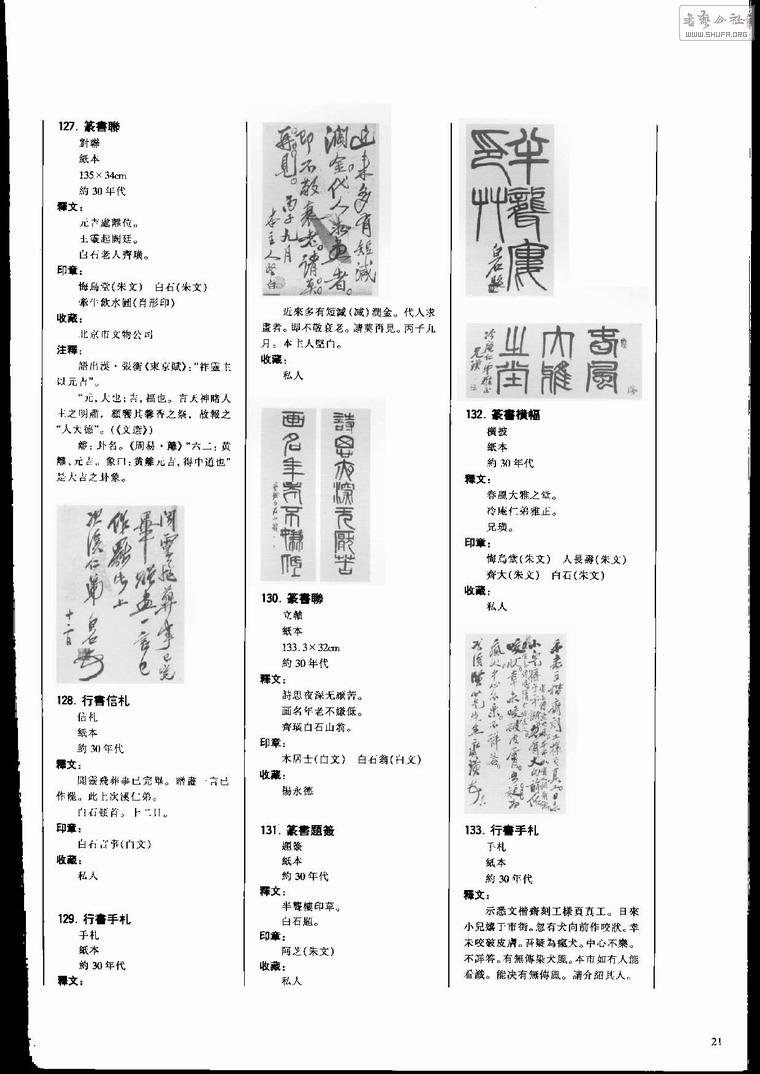 书艺公社
WWW.SHUFA.ORG
127. 篆書聯
對聯
紙本
135×34cm
約30年代
釋文：
元吉處離位。
土霰起閼廷。
白石老人齊璜。
印章：
悔烏堂(朱文) 白石(朱文)
牽牛飲水圖(肖形印)
收藏：
北京市文物公司
注釋：
語出漢·張衡《東京賦》：“祚靈主
以元吉”。
“元，大也；吉，福也。言天神睹人
主之明肅，顧饗其馨香之祭，故報之
“人大德”。(《文選》)
離：卦名。《周易·離》“六二：黄
離，元吉。象曰：黄離元吉，得中道也”
是大吉之卦象。
128. 行書信札
信札
紙本
約30年代
釋文：
聞靈飛葬事已完畢。贈畫一言已
作罷。此上次溪仁弟。
白石頓首。十二日。
印章：
白石言事(白文)
收藏：
私人
129. 行書手札
手札
紙本
約30年代
釋文：
近来多有短减
润金。代人求画者。
即不敬衰老。請莫
再見。丙子九月
本主人堅白
近來多有短減(减)潤金。代人求
畫者。即不敬衰老。請莫再見。丙子九
月。本主人堅白。
收藏：
私人
詩思夜深无厭苦
画名年老不嫌低
130. 篆書聯
立軸
紙本
133.3×32cm
約30年代
釋文：
詩思夜深无厭苦。
画名年老不嫌低。
齊璜白石山翁。
印章：
木居士(白文) 白石翁(白文)
收藏：
楊永德
131. 篆書題簽
題簽
紙本
約30年代
釋文：
半聾樓印草。
白石題。
印章：
阿芝(朱文)
收藏：
私人
半聾樓
印艸
白石題
春風
大雅
之堂
132. 篆書橫幅
橫披
紙本
約30年代
釋文：
春風大雅之堂。
冷庵仁弟雅正。
兄璜。
印章：
悔烏堂(朱文) 人長壽(朱文)
齊大(朱文) 白石(朱文)
收藏：
私人
133. 行書手札
手札
紙本
約30年代
釋文：
示悉文楷齋刻工樣頁真工。日來
小兒嬉于市街。忽有犬向前作咬狀。幸
未咬破皮膚。吾疑為瘋犬。中心不樂。
不詳答。有無傳染犬風。本市如有人能
看識。能决有無傳風。請介紹其人。
21